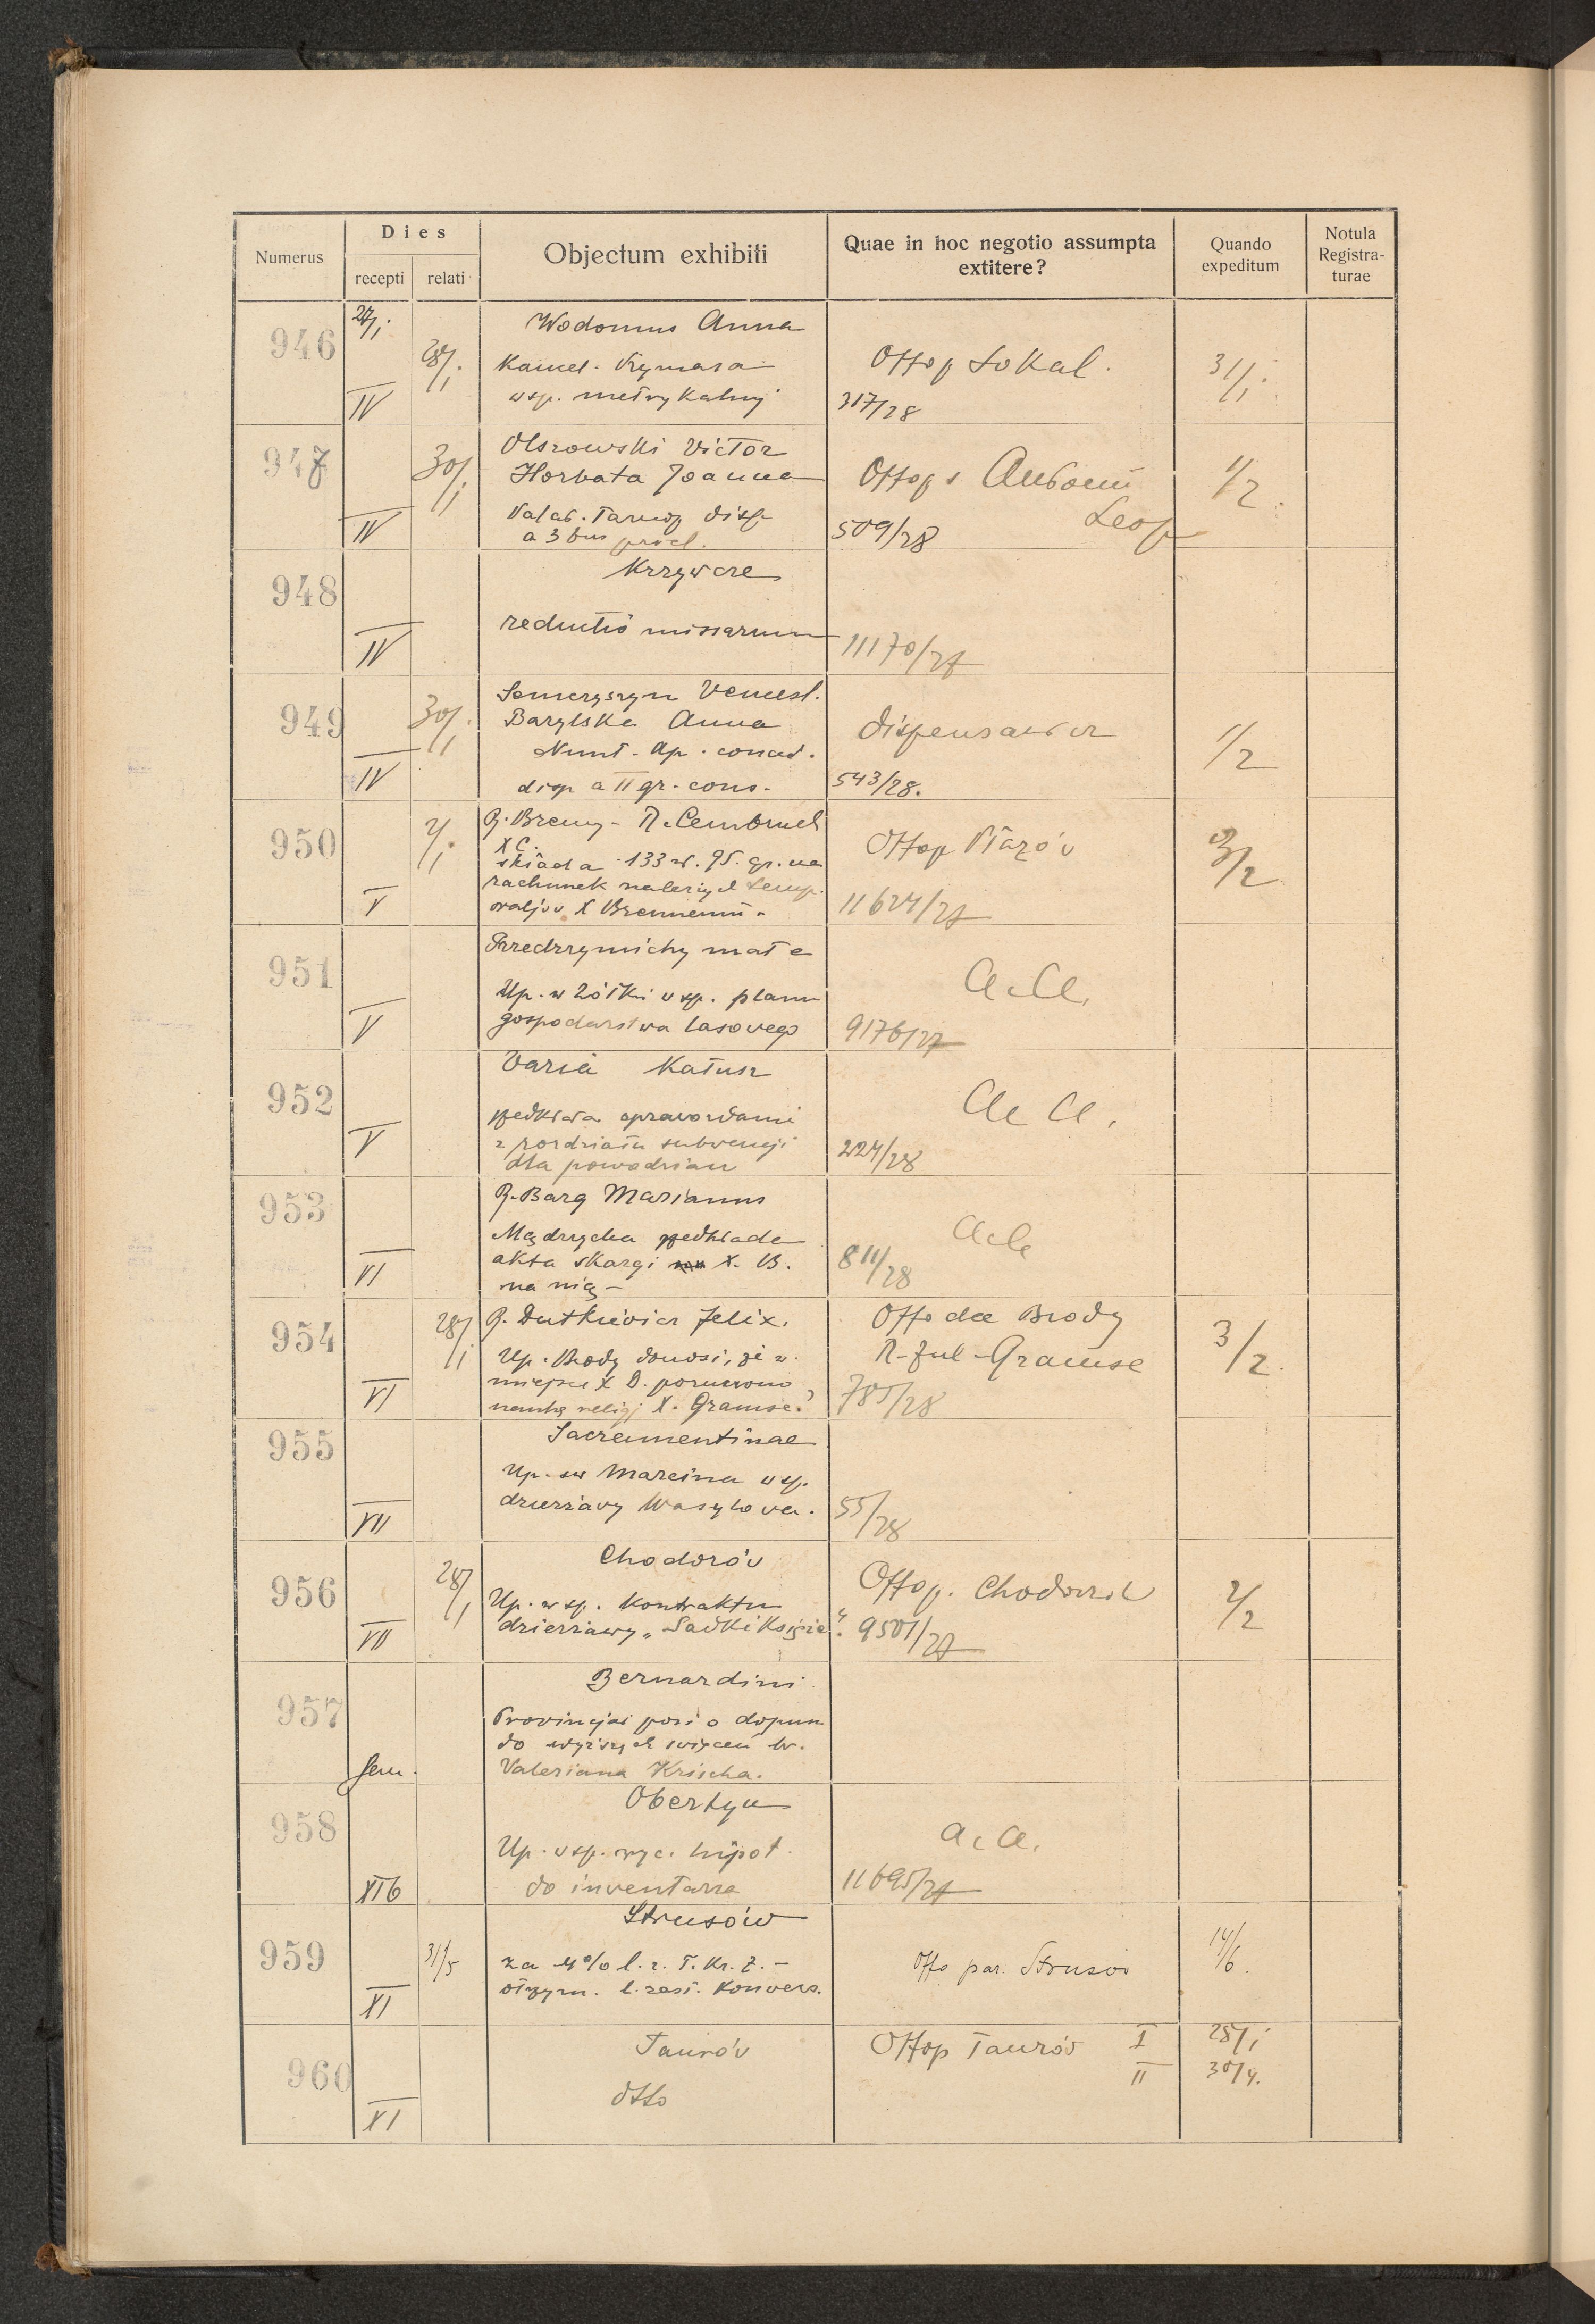 Numerus
Dies
recepti relati
Objectum exhibiti
Quae in hoc negotio assumpta
extitere?
Quando
expeditum
Notula
Registra-
turae
946
27/I.
28/I.
IV
Wodomus Anna
Kancel. Rymasa
wsp. metrykalnej
Offop Sokal.
317/28
31/I.
947
30/I.
IV
Olszowski Victor
Horbata Joanna
Palat. Tarnop disp
a 3bus procl.
Offop s Antonii
Leop
509/28
1/2.
948
IV
Krzywcze
reductio missarum
11170/27
949
30/I.
IV
Semczyszyn Vencesl.
Barylska Anna
Nunt. Ap. conced.
disp a II gr. cons.
Dispensatur
543/28.
1/2
950
V
R. Breny - R. Cembruch
XC.
składa 133 zł. 95 gr. na
rachunek należyt temp.
X Brennemu -
Offop Płazów
11624/27
3/2
951
V
Przedrzymichy małe
Up. w Żółkwi wsp. planu
gospodarstwa lasowego
a.a.
9176/27
952
V
Varia Kałusz
przedkłada sprawozdanie
z rozdziału subwencji
dla powodzian
a a.
224/28
953
VI
R. Barg Marianus
Mądrzycka przedkłada
akta skargi X. B.
na nią -
a a
811/28
954
28/I
VI
R. Dutkiewicz Felix.
Up. Brody donosi, że w
miejsce X D. poruczono
naukę religj X. Gramse?
Offo dec Brody
R. Jul Gramse
785/28
3/2.
955
VII
Sacramentinae
Up. św Marcina wsp.
dzierżawy Wasylowa.
55/28
956
28/I
VII
Chodorów
Up. w sp. Kontraktu
dzierżawy „Sadki Księże".
Offop. Chodorów
9501/27
2/2
957
Sem.
Bernardini
Prowincjał prosi o dopuszcz
do wyższych święceń br.
Valeriana Krischa.
958
XIb
Obertyn
Up. wsp. wyc. hipot.
do inventarza
a.a.
11695/27
959
31/5
XI
Strusów
za 4% l. z. T. Kr. Z. -
otrzym. l. zast. Konvers.
Offo par. Strusów
14/6.
960
XI
Taurów
dtto
Offop Taurów I
II
28/I
30/4.